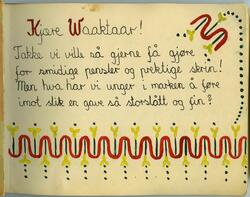 Kjære Waaktaar!
Takke vi ville så gjerne få gjøre
for smidige pensler og prektige skrin!
Men hva har vi unger i marken å føre
imot slik en gave så storslått og fin?